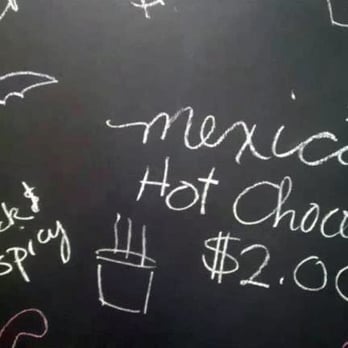 mexica
Hot Choc
$2.00
spicy